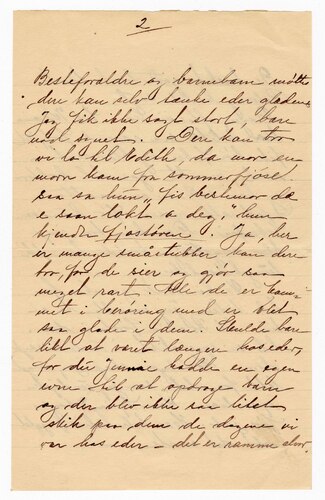 2
Besteforældre og barnebarn mødtes
dere kan selv tænke eder glæden.
Jeg fik ikke sagt stort, bare
nød synet. Dere kan tro
vi lo til Edith, da mor en
morn kam fra sommerfjøse
saa sa hun "fis bestemor da
e saan lokt a deg," hun
kjender fjøstøren. Ja, her
er mange småstubber kan dere
tro, for de sier og gjør saa
meget rart. Alle de er kom-
met i berøring med er blet
saa glade i dem. Skulde bare
likt at været længere hos eder,
for du Jennie hadde en egen
evne til at opdrage barn
og der blev ikke saa litet
skik paa dem de dagene vi
var hos eder – det er ramme alvor.